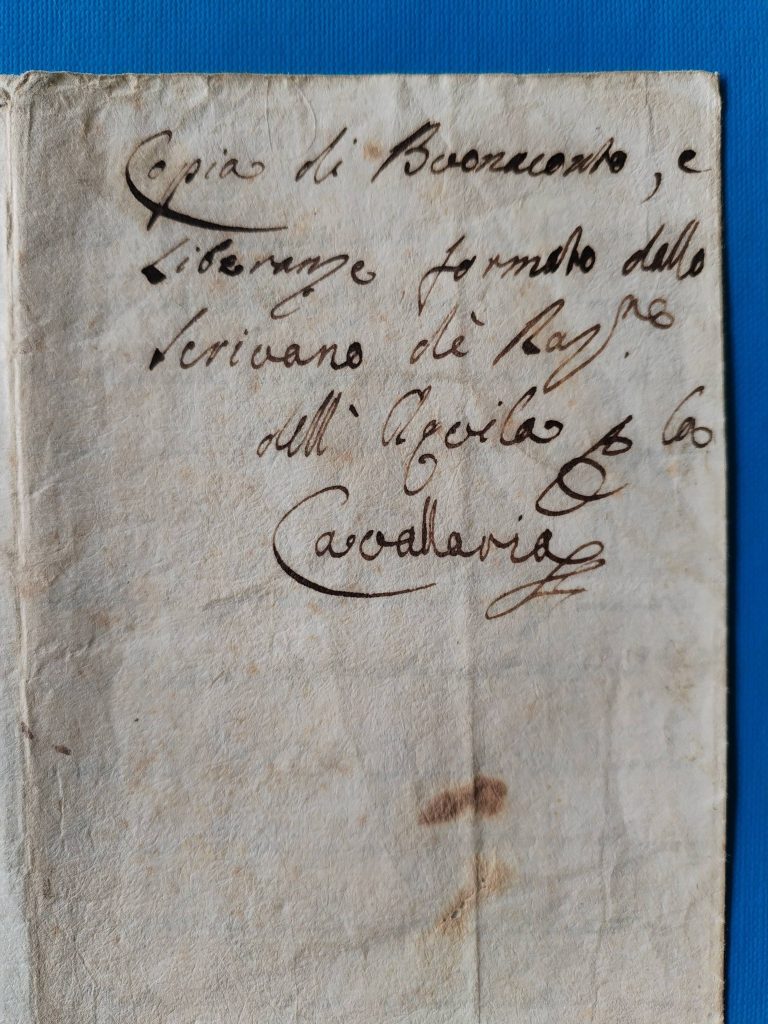 Copia di Buonaconto, e
Liberanze formato dallo
Scrivano dè Raz.ne
dell' Aquila p la
Cavallaria